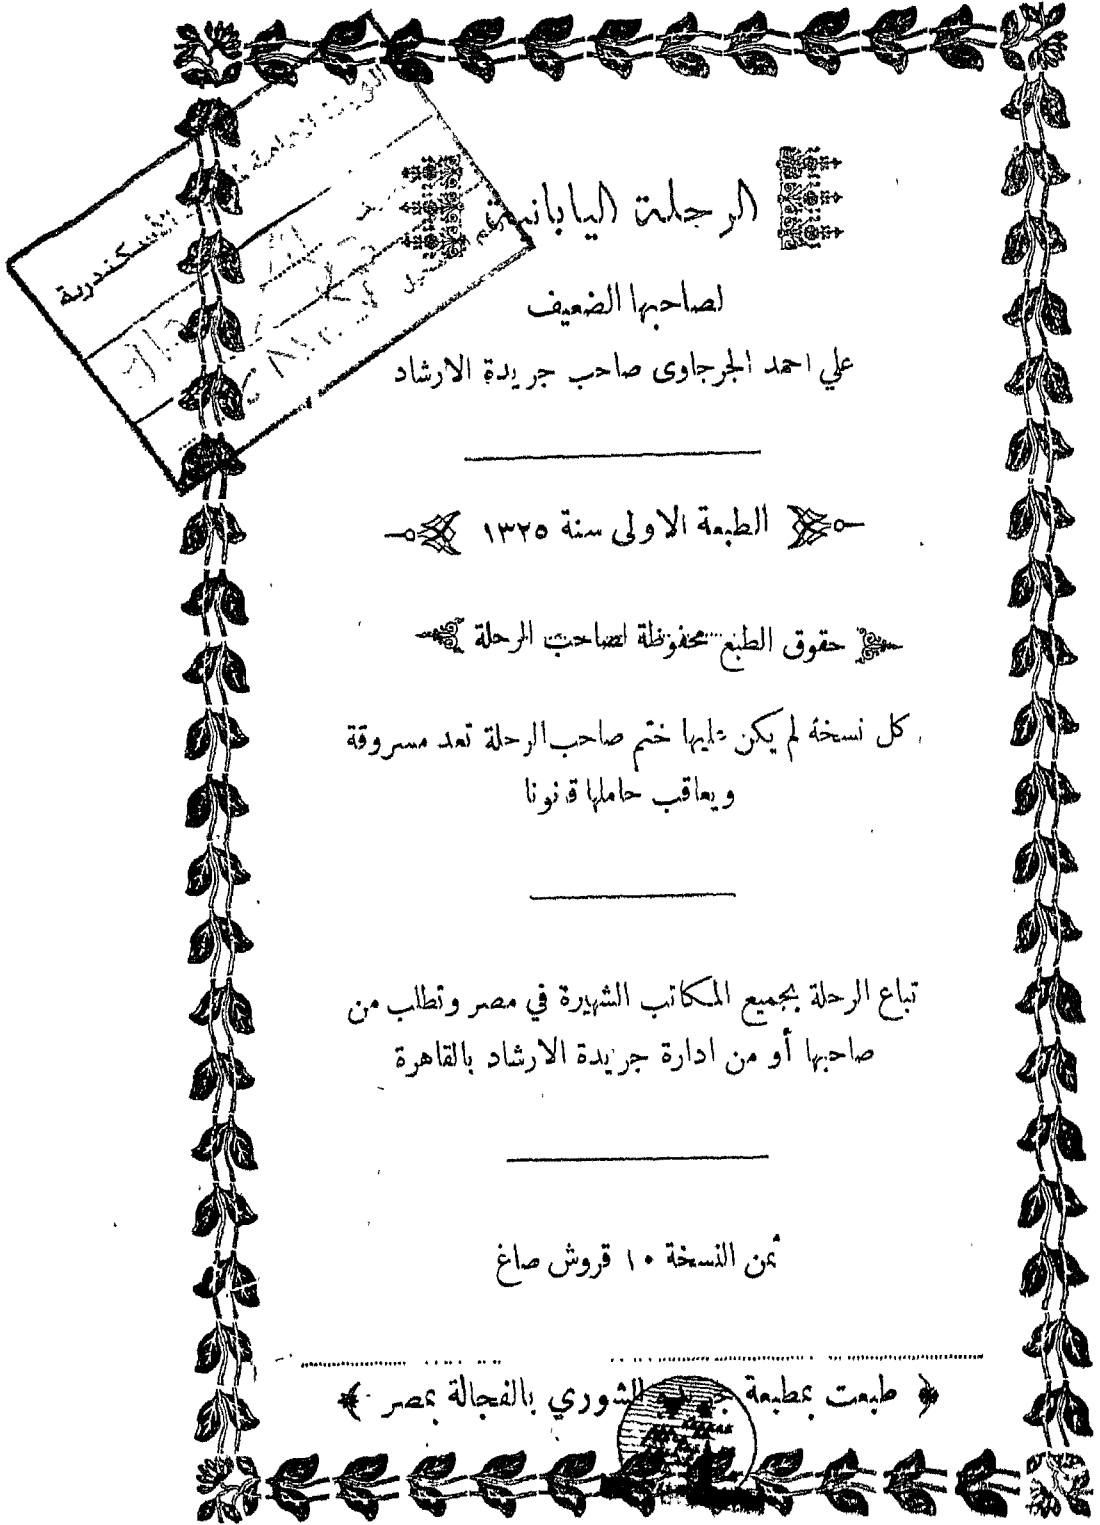 الرحلة اليابانية
لصاحبها الضعيف
علي احمد الجرجاوى صاحب جريدة الارشاد
الطبعة الاولى سنة ١٣٢٥
حقوق الطبع محفوظة لصاحب الرحلة
كل نسخة لم يكن عليها ختم صاحب الرحلة تعد مسروقة
ويعاقب حاملها قانونا
تباع الرحلة بجميع المكاتب الشهيرة في مصر وتطلب من
صاحبها أو من ادارة جريدة الارشاد بالقاهرة
ثمن النسخة ١٠ قروش صاغ
طبعت بمطبعة جريدة الشوري بالفجالة بمصر
الهيئة العامة الأسكندرية
رقم